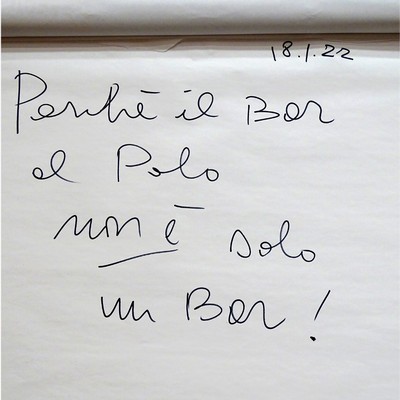 18.1.22
Perchè il Bar
al Polo
non è solo
un Bar!